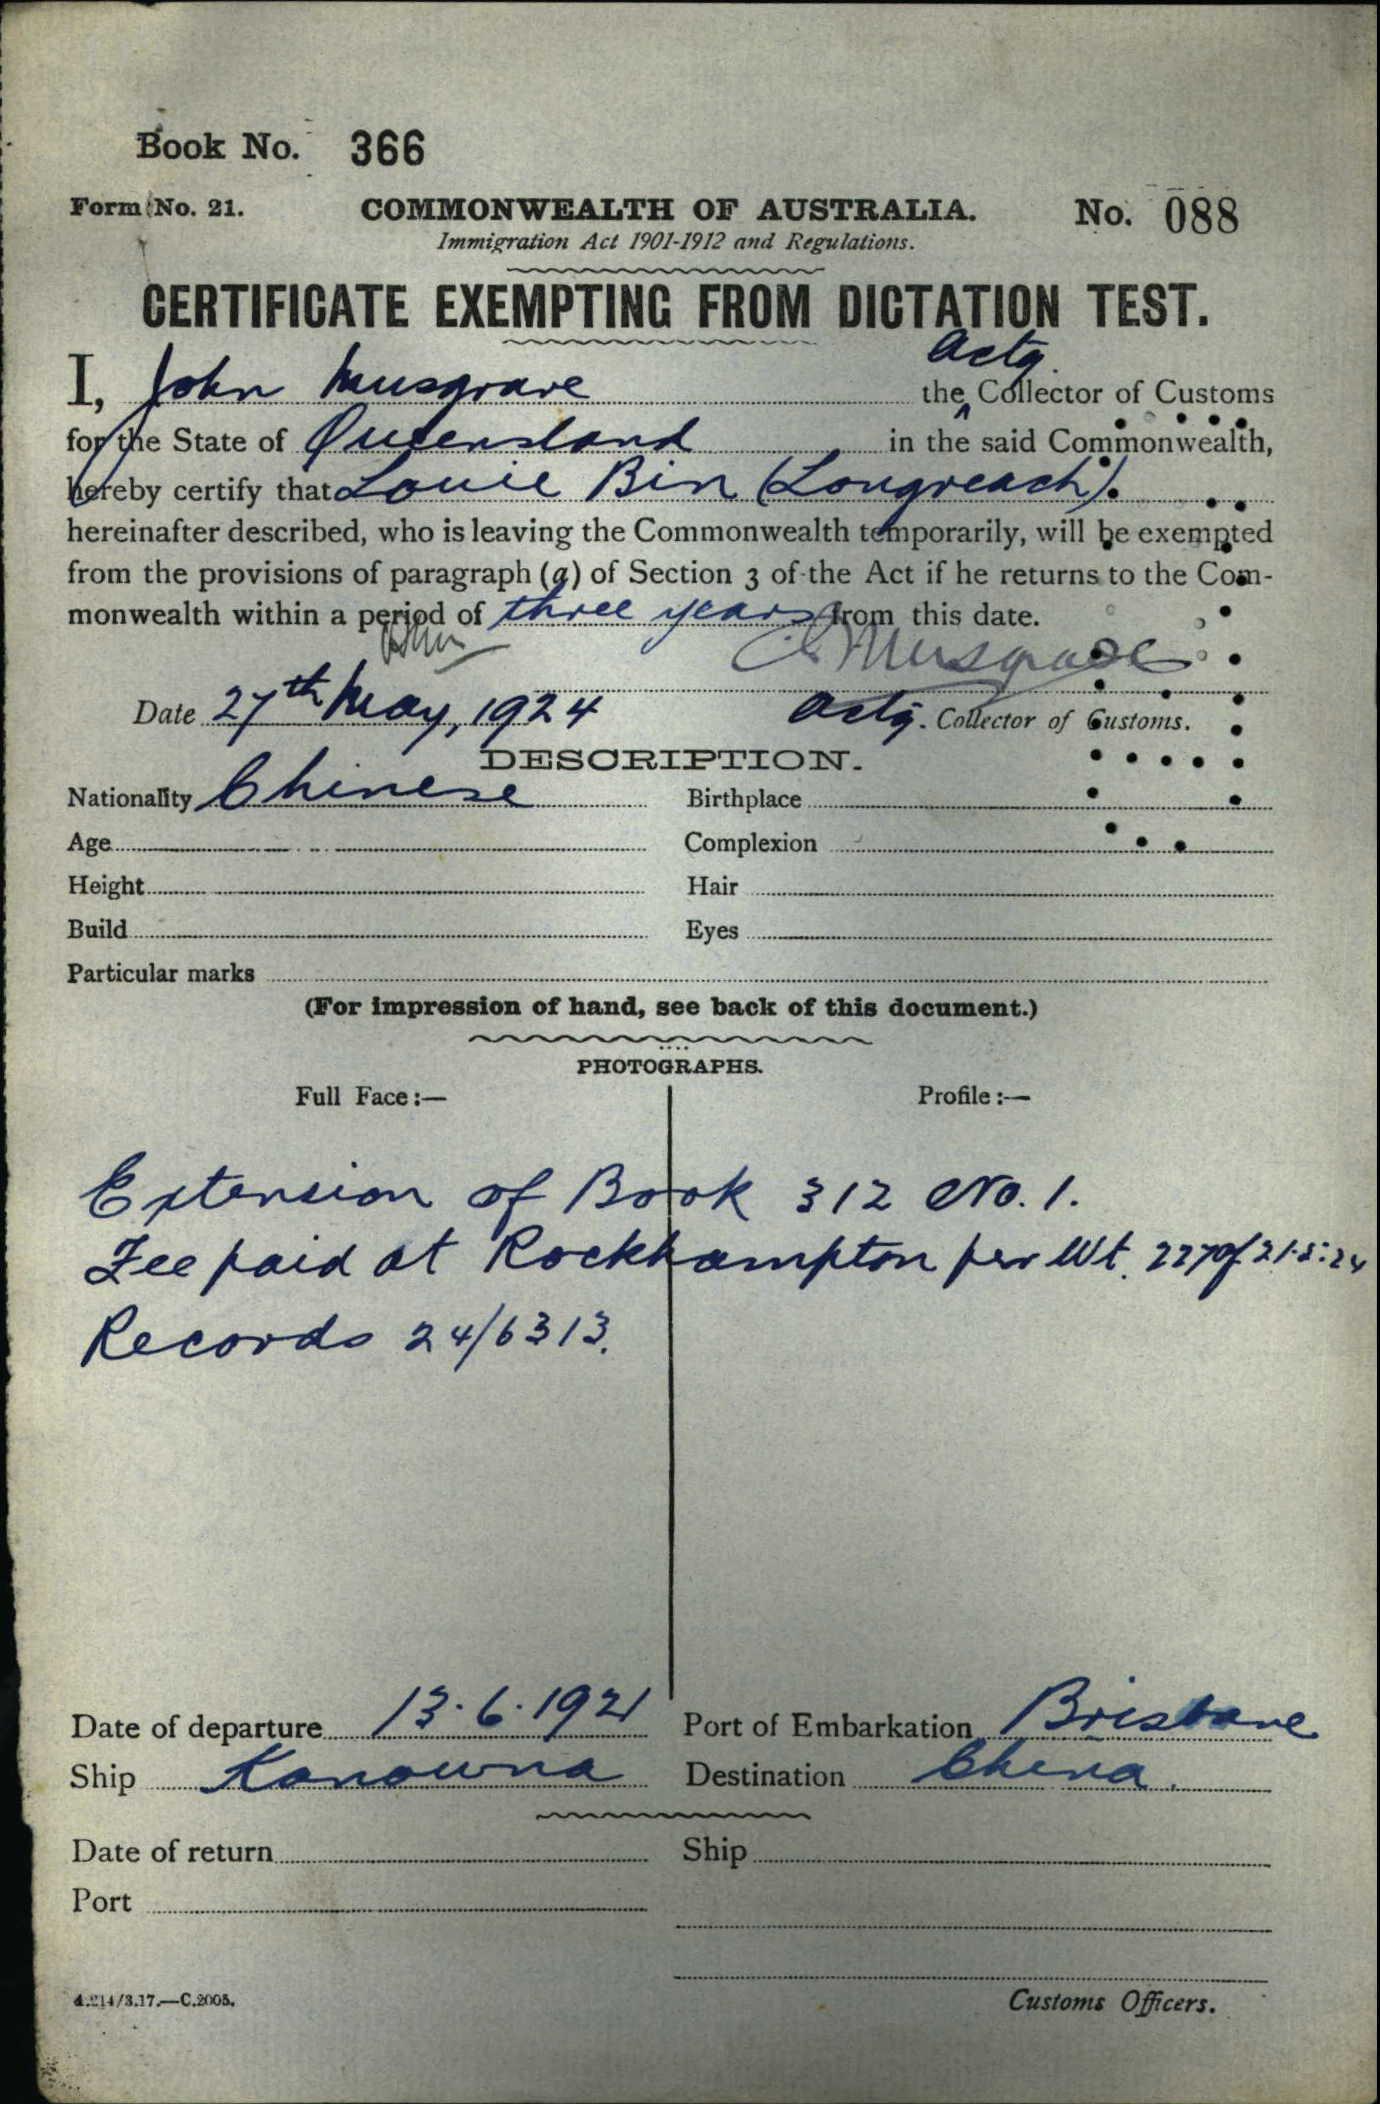 Book No. 366
Form No. 21. COMMONWEALTH OF AUSTRALIA. No. 088
Immigration Act 1901-1912 and Regulations.
CERTIFICATE EXEMPTING FROM DICTATION TEST.
Actg.
I, John Musgrave the ^ Collector of Customs
for the State of Queensland in the said Commonwealth,
hereby certify that Louie Bin (Longreach).
hereinafter described, who is leaving the Commonwealth temporarily, will be exempted
from the provisions of paragraph (a) of Section 3 of the Act if he returns to the Com-
monwealth within a period of three years from this date.
Musgrave
Date 27th May, 1924 Actg. Collector of Customs.
DESCRIPTION.
Nationality Chinese Birthplace
Age Complexion
Height Hair
Build Eyes
Particular marks
(For impression of hand, see back of this document.)
PHOTOGRAPHS.
Full Face :— Profile :—
Extension of Book 312 No. 1.
Fee paid at Rockhampton per Wt. 227 of 21.5.24
Records 24/6313.
Date of departure 13.6.1921 Port of Embarkation Brisbane
Ship Kanowna Destination China.
Date of return Ship
Port
4.214/3.17.—C.2005. Customs Officers.